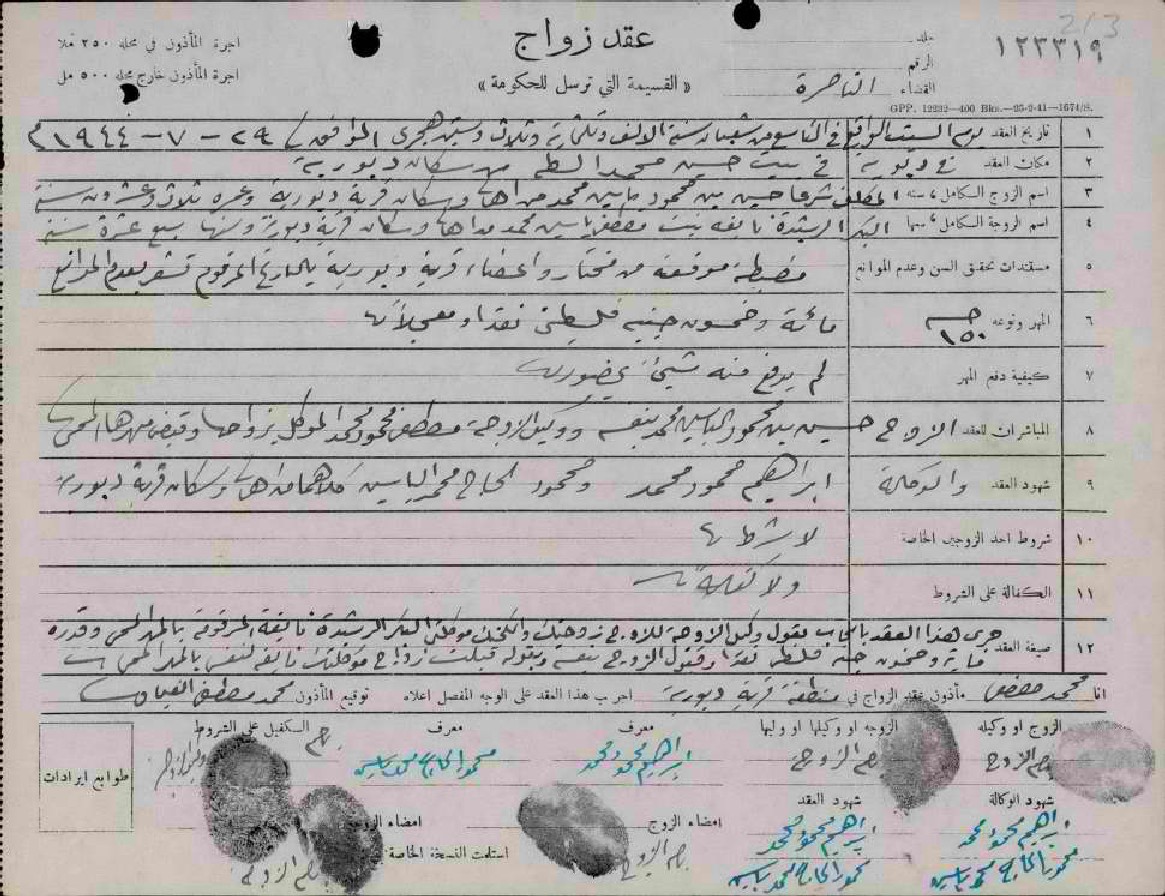 2/3
١٢٣٣١٩
عقد زواج
« القسيمة التي ترسل للحكومة »
اجرة المأذون في محله ٢٥٠ ملا
اجرة المأذون خارج محله ٥٠٠ مل
جلد
الرقم
القضاء الناصرة
GPP. 12232—400 Bks.—25-2-41—1674/S.
١ تاريخ العقد يوم السبت الواقع في التاسع من شعبان سنة الالف وثلثماية وثلاث وستين هجري الموافق ٢٩ - ٧ - ١٩٤٤ م
٢ مكان العقد في دبورية في بيت حسين محمد من سكان دبورية
٣ اسم الزوج الكامل، سنه المكلف شرعا حسين بن محمود ياسين محمد من اهالي وسكان قرية دبورية وعمره ثلاث وعشرون سنة
٤ اسم الزوجة الكامل، سنها البكر الرشيدة نايفه بنت مصطفى ياسين محمد من اهالي وسكان قرية دبورية وسنها سبع عشرة سنة
٥ مستندات تحقيق السن وعدم الموانع مضبطة موقعة من مختار واعضاء قرية دبورية بالتاريخ المرقوم تشعر بعدم الموانع
٦ المهر ونوعه ١٥٠ مائة وخمسون جنيه فلسطيني نقدا ومعجلا
٧ كيفية دفع المهر لم يدفع منه شيئ بحضوري
٨ المباشران للعقد الزوج حسين بن محمود الياسين محمد بنفسه ووكيل الزوجة مصطفى محمود محمد الموكل بزواجها وقبض مهرها المسمى
٩ شهود العقد والوكالة ابراهيم محمود محمد ومحمود الحاج محمد الياسين كلاهما من اهالي وسكان قرية دبورية
١٠ شروط احد الزوجين الخاصة لا شرط
١١ الكفالة على الشروط ولا كفالة
١٢ صيغة العقد جرى هذا العقد بايجاب بقول وكيل الزوجة للزوج زوجتك وانكحتك موكلتي البكر الرشيدة نايفة المرقومة بالمهر المسمى وقدره
ماية وخمسون جنيه فلسطيني نقدا وقبول الزوج بنفسه وبقوله قبلت زواج موكلتك نايفه لنفسي بالمهر المسمى
انا محمد مصطفى مأذون عقد الزواج في منطقة قرية دبورية اجريت هذا العقد على الوجه المفصل اعلاه توقيع المأذون محمد مصطفى
الزوج او وكيله الزوجه او وكيلها او وليها معرف معرف الكفيل على الشروط
بصم الزوج بصم الزوجة ابراهيم محمود محمد محمود الحاج محمد ياسين بصم
طوابع ايرادات
شهود الوكالة شهود العقد
ابراهيم محمود محمد ابراهيم محمود محمد
محمود الحاج محمد ياسين محمود الحاج محمد ياسين
استلمت النسخة الخاصة امضاء الزوج امضاء الزوجة
بصم الزوج بصم الزوجة